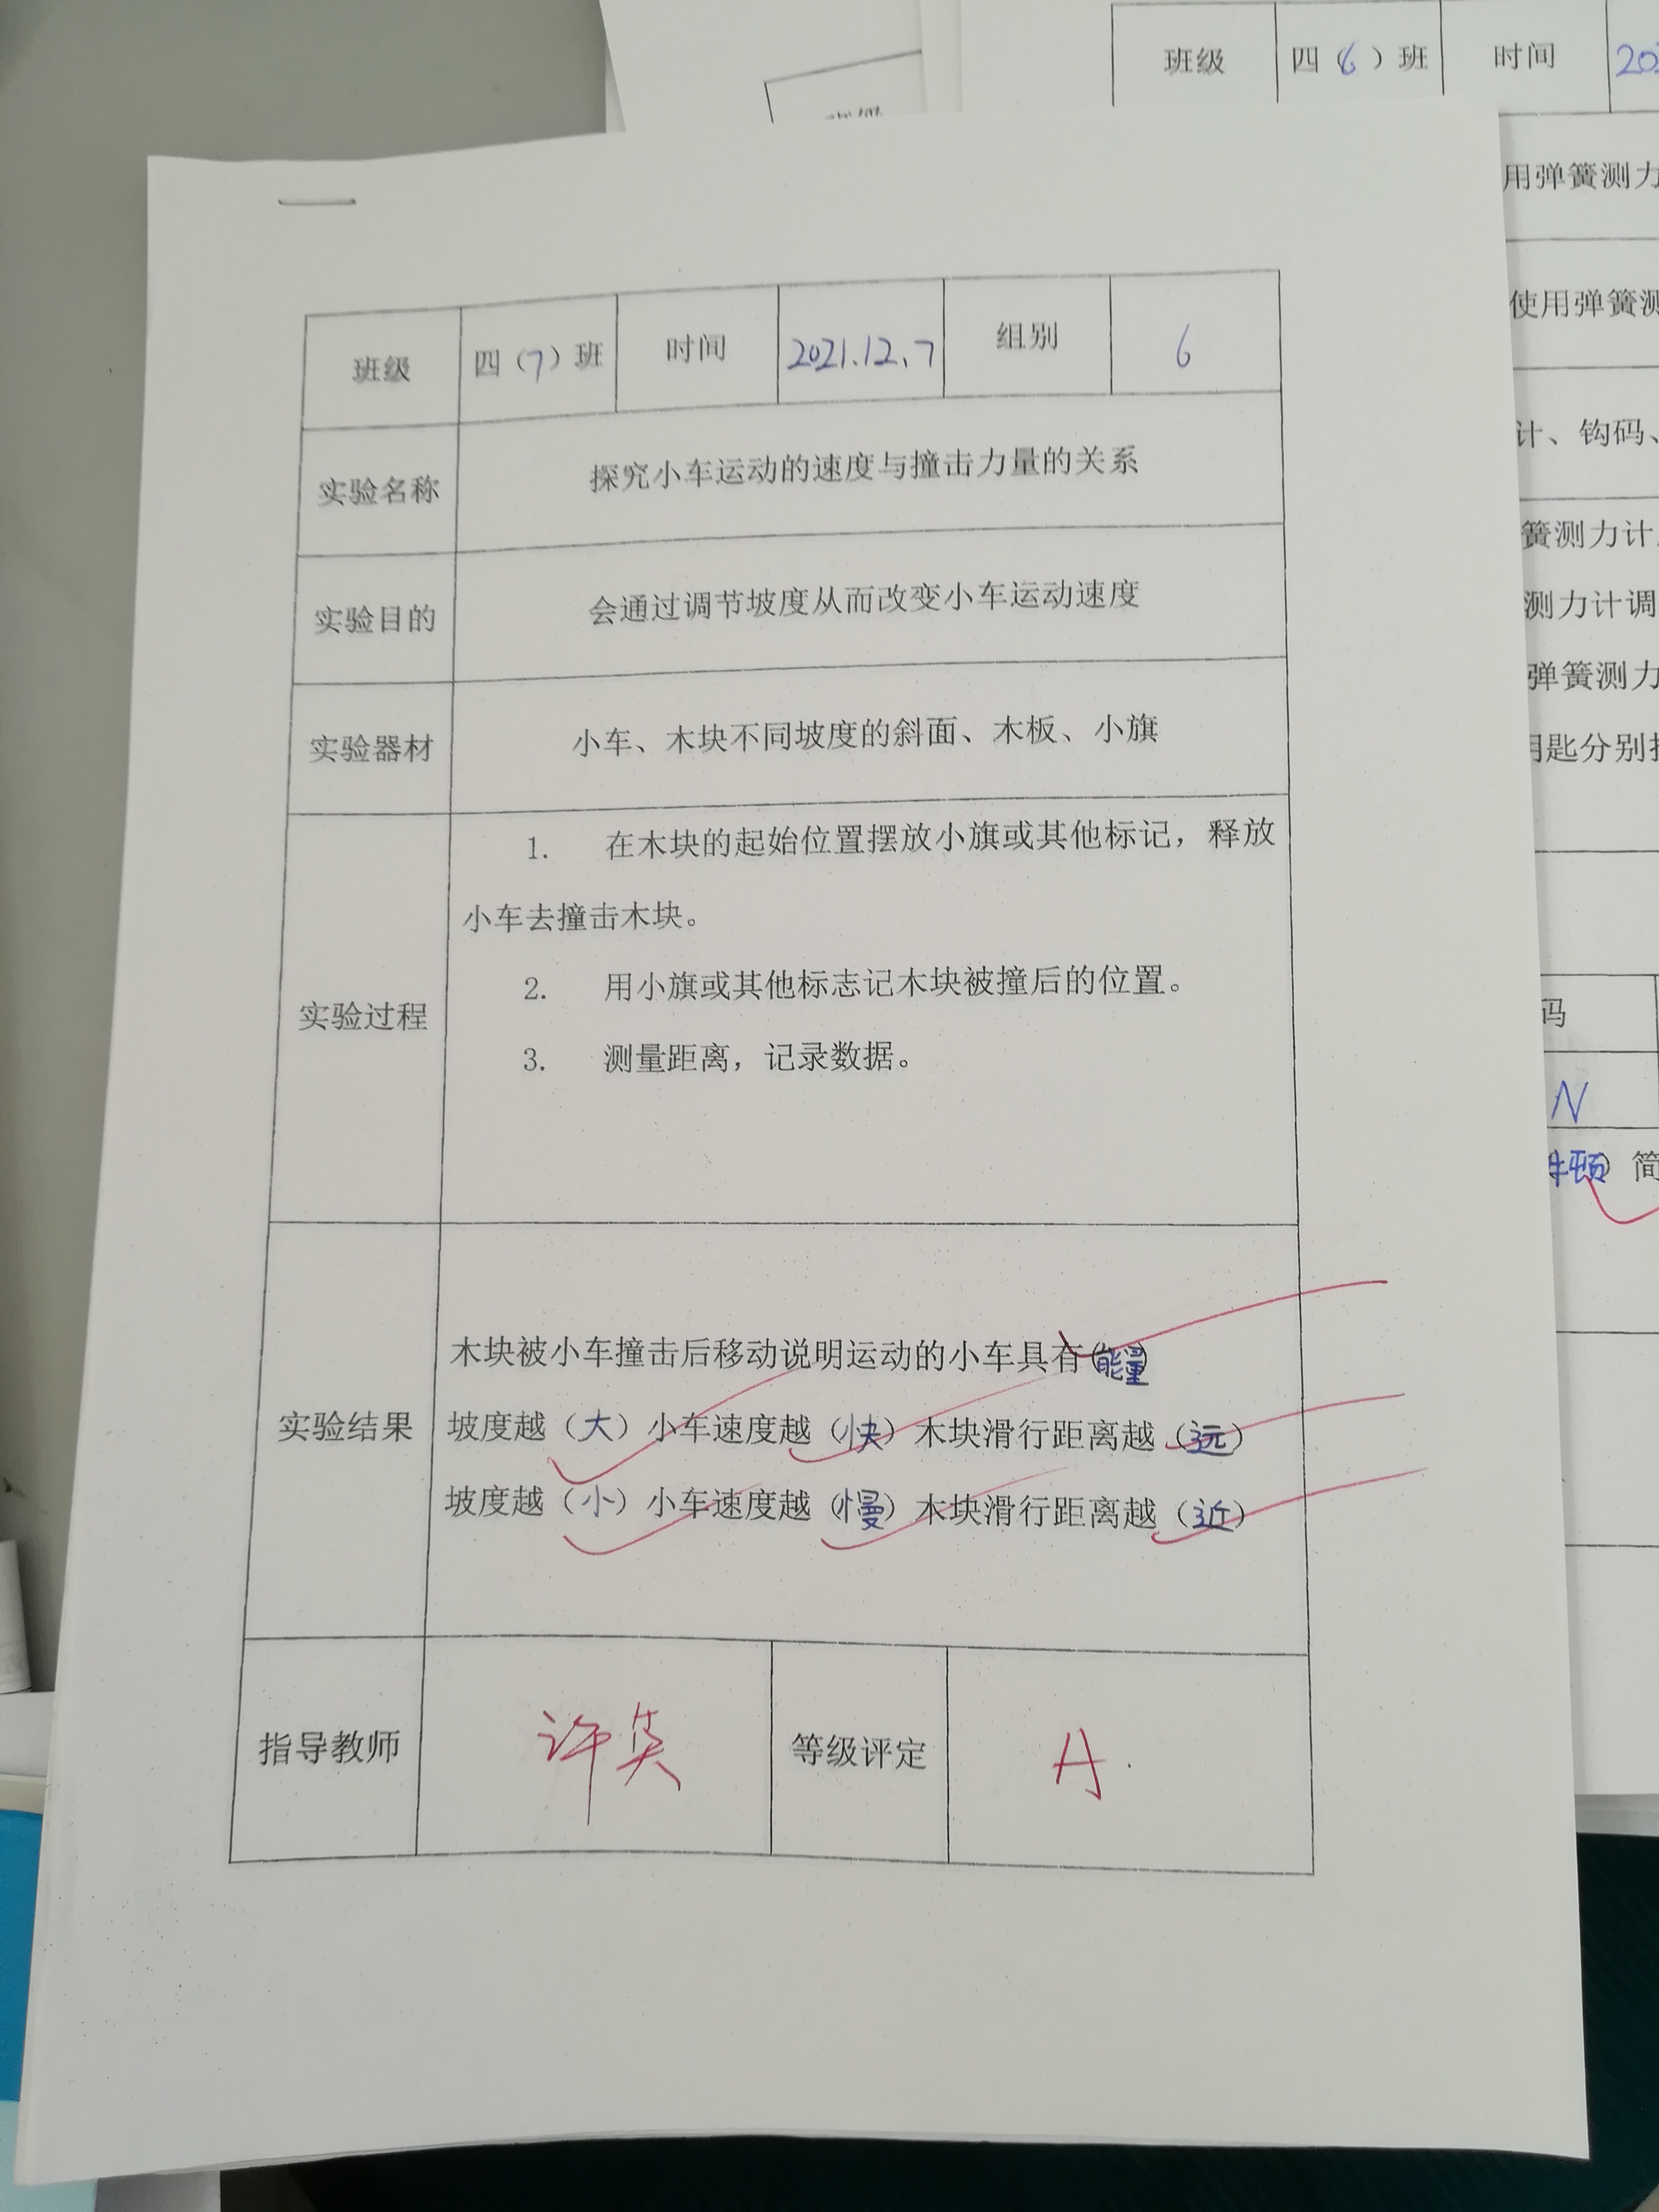 班级 四（6）班 时间
用弹簧测力
使用弹簧测
计、钩码、
簧测力计
测力计调
弹簧测力
匙分别
码
N
牛顿）简
班级 四（7）班 时间 2021.12.7 组别 6
实验名称 探究小车运动的速度与撞击力量的关系
实验目的 会通过调节坡度从而改变小车运动速度
实验器材 小车、木块不同坡度的斜面、木板、小旗
实验过程
1. 在木块的起始位置摆放小旗或其他标记，释放
小车去撞击木块。
2. 用小旗或其他标志记木块被撞后的位置。
3. 测量距离，记录数据。
实验结果
木块被小车撞击后移动说明运动的小车具有（能量）
坡度越（大）小车速度越（快）木块滑行距离越（远）
坡度越（小）小车速度越（慢）木块滑行距离越（近）
指导教师 许英 等级评定 A.